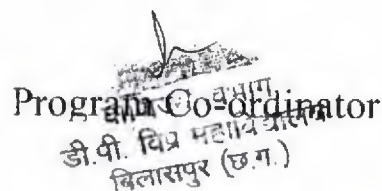 Program Co-ordinator
विभाग
डी.पी. विप्र महाविद्यालय
बिलासपुर (छ.ग.)